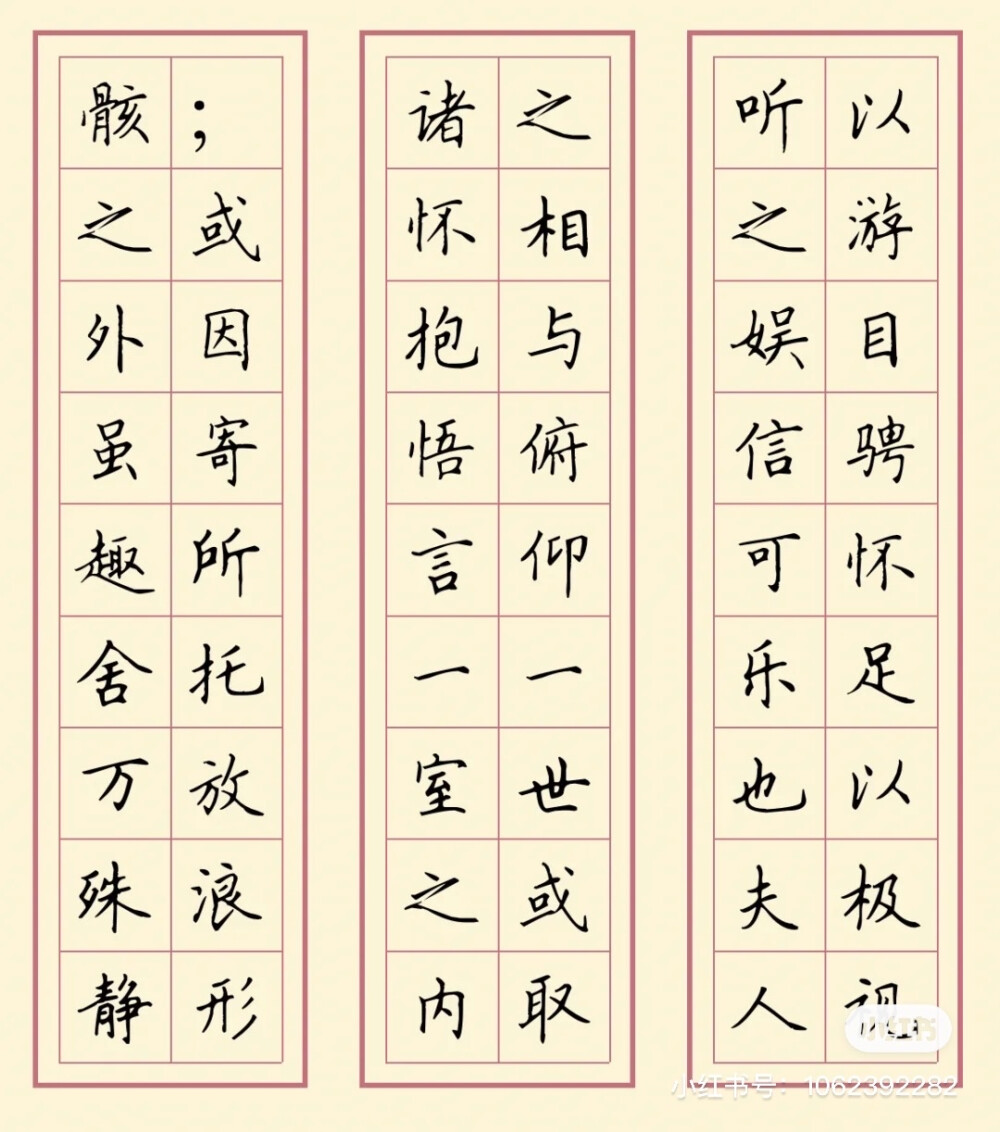 以游目骋怀足以极视
听之娱信可乐也夫人
之相与俯仰一世或取
诸怀抱悟言一室之内
；或因寄所托放浪形
骸之外虽趣舍万殊静
小红书
小红书号：1062392282